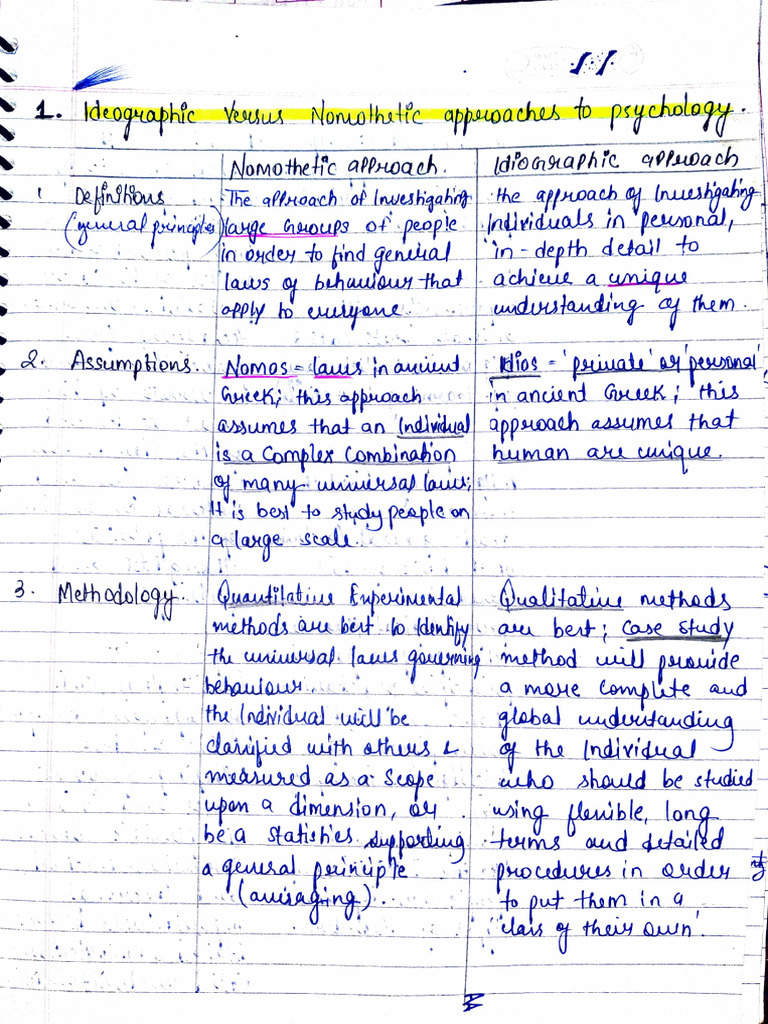 1. Ideographic versus Nomothetic approaches to psychology.
Nomothetic approach. Idiographic approach
1 Definitions (general principles)
The approach of Investigating
large Groups of people
in order to find general
laws of behaviour that
apply to everyone.
the approach of Investigating
Individuals in personal,
in-depth detail to
achieve a unique
understanding of them.
2. Assumptions.
Nomos = laws in ancient
Greek; this approach
assumes that an Individual
is a Complex Combination
of many universal laws;
It is best to study people on
a large scale.
Idios = 'private' or 'personal'
in ancient Greek; this
approach assumes that
human are unique.
3. Methodology.
Quantitative Experimental
methods are best to Identify
the universal laws governing
behaviour.
the Individual will be
classified with others &
measured as a Scope
upon a dimension, or
be a statistics supporting
a general principle
(averaging).
Qualitative methods
are best; case study
method will provide
a more complete and
global understanding
of the Individual
who should be studied
using flexible, long
terms and detailed
procedures in order
to put them in a
'class of their own'.